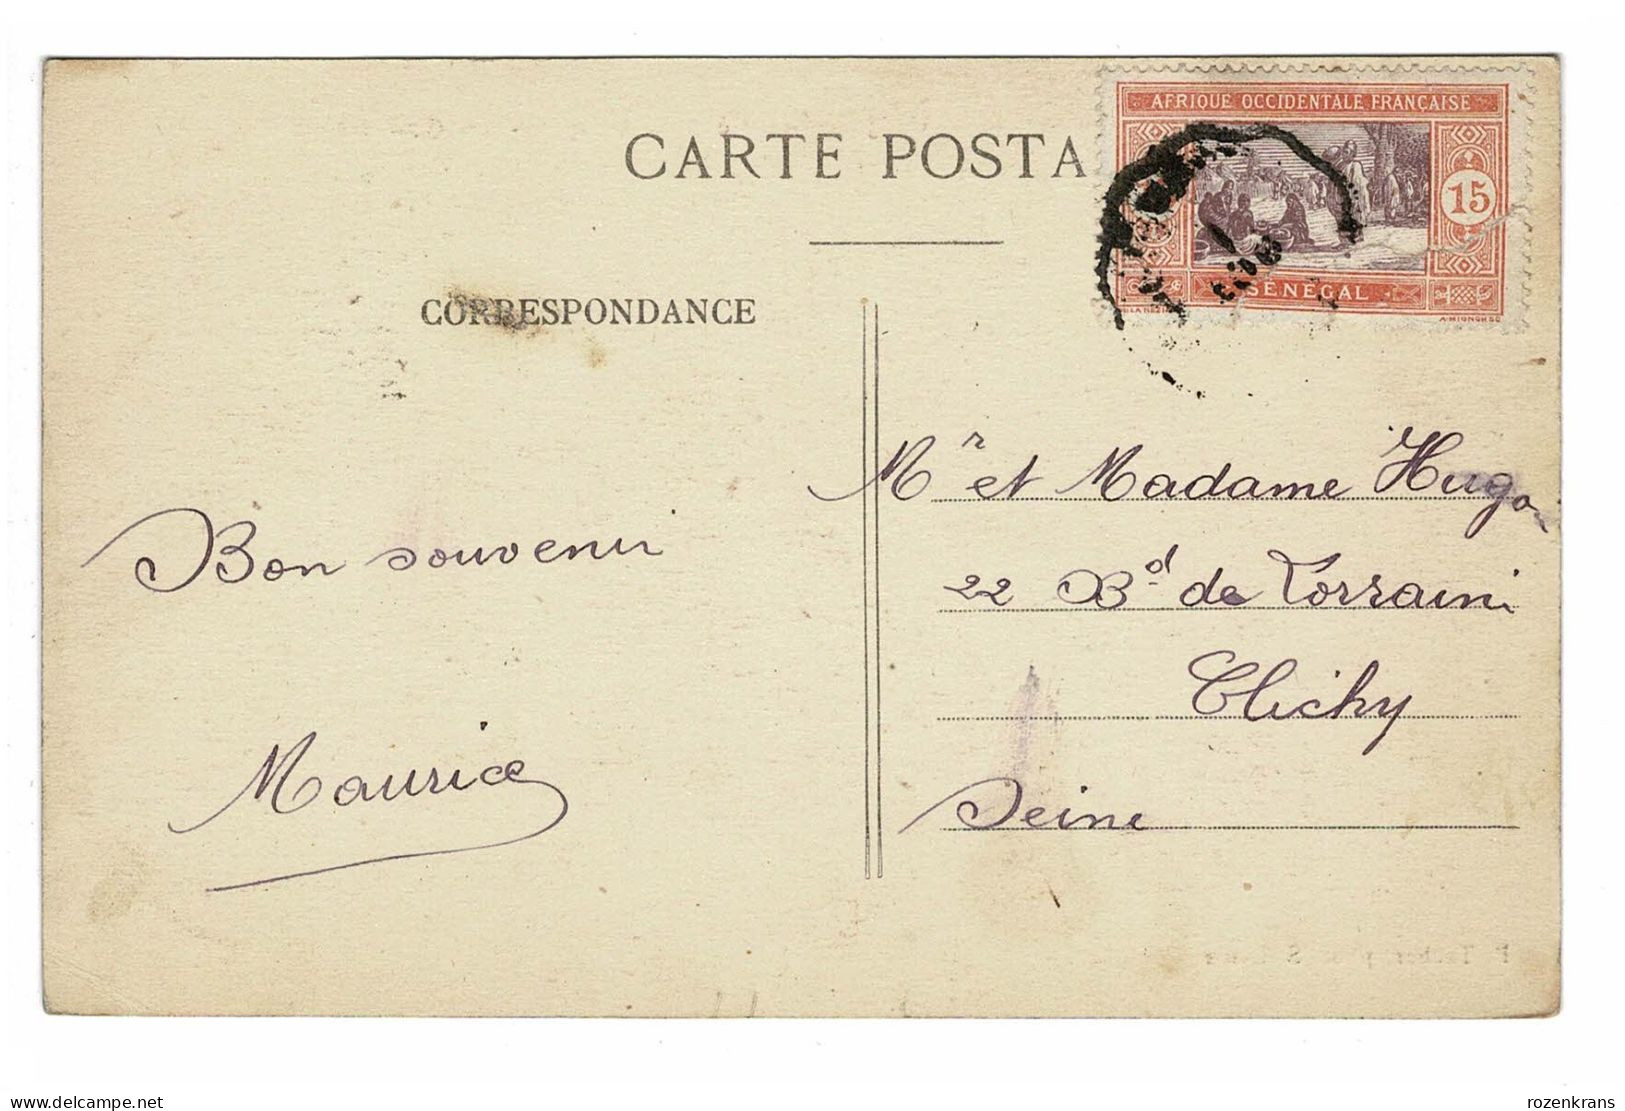 CARTE POSTA
AFRIQUE OCCIDENTALE FRANÇAISE
15
SÉNÉGAL
CORRESPONDANCE
Mr et Madame Hugo
22 Bd de Lorraine
Clichy
Seine
Bon souvenir
Maurice
rozenkrans